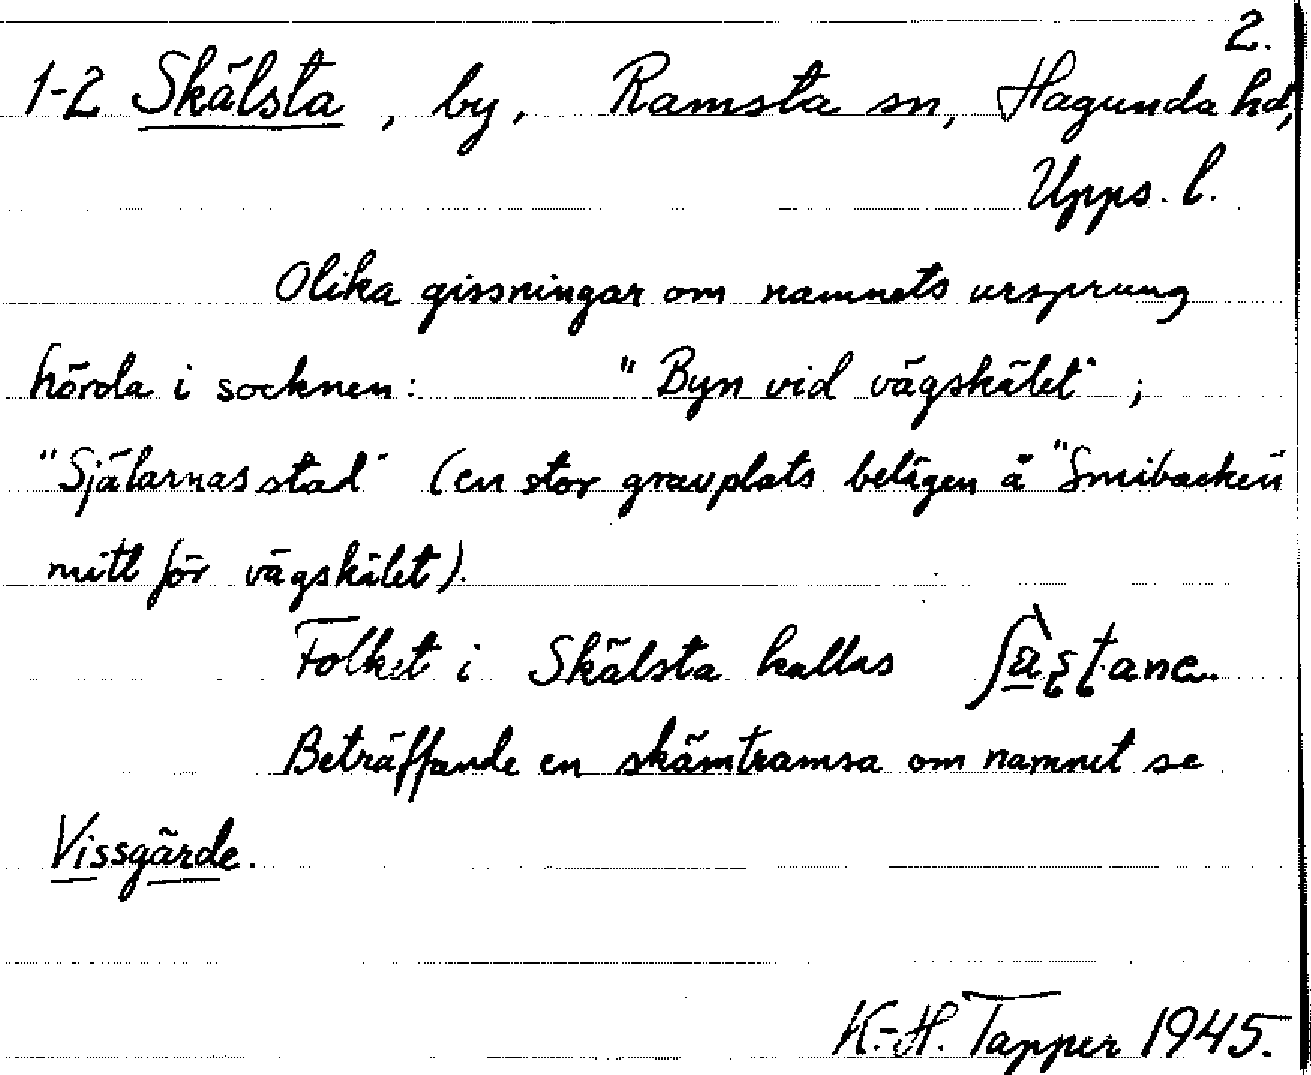 2.
1-2 Skälsta, by, Ramsta sn, Hagunda hd,
Upps. l.
Olika gissningar om namnets ursprung
hörda i socknen: "Byn vid vägskälet";
"Själarnas stad" (en stor gravplats belägen å "Smibacken"
mitt för vägskälet).
Folket i Skälsta kallas
Beträffande en skämtramsa om namnet se
Vissgärde.
K.-H. Tapper 1945.